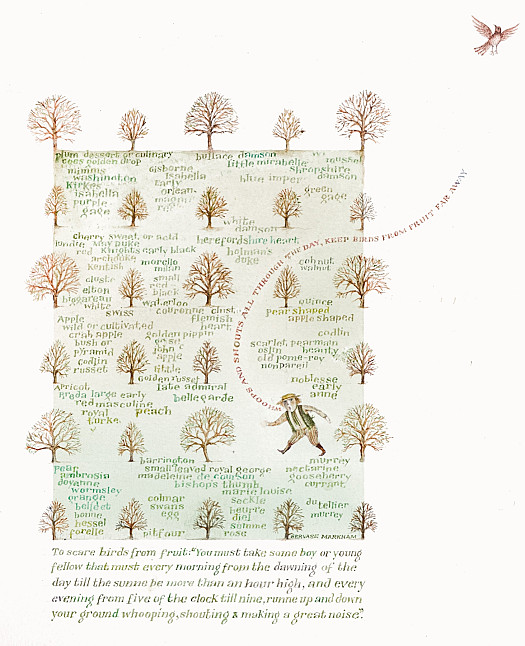 plum dessert or culinary
bullace damson
coes golden drop
little mirabelle
mussel
mimms
gisborne
Shropshire
damson
washington
Isabella
Kirkes
early
blue imper
isabella
orlean
green
gage
purple
gage
magnum
white
damson
cherry sweet, or acid
herefordshire heart
white may duke
red Knights early black
holman's
duke
archduke
kentish
morello
milan
cob nut
walnut
small
red
black
elton
bigarreau
white
waterloo
quince
swiss
couronne
clust
pear shaped
Apple
flemish
heart
apple shaped
wild or cultivated
crab apple
golden pippin
codlin
bush or
pyramid
john
apple
scarlet pearmain
oslin
beauty
codlin
russet
little
old pome-roy
nonpareil
golden russet
noblesse
Apricot
late admiral
early
anne
breda large early
belle garde
red masculine
royal
peach
turkey
WHOOPS AND SHOUTS ALL THROUGH THE DAY, KEEP BIRDS FROM FRUIT FAR AWAY
harrington
murrey
pear
small leaved royal george
nectarine
ambrosia
madeleine de courson
gooseberry
doyenne
bishops thumb
currant
wormsley
marie louise
orange
colmar
seckle
du tellier
beldet
swans
egg
beurre
diel
murrey
bonne
hessel
summe
rose
forelle
pitfour
GERVASE MARKHAM
To scare birds from fruit: "You must take some boy or young
fellow that must every morning from the dawning of the
day till the sunne be more than an hour high, and every
evening from five of the clock till nine, runne up and down
your ground whooping, shouting & making a great noise".